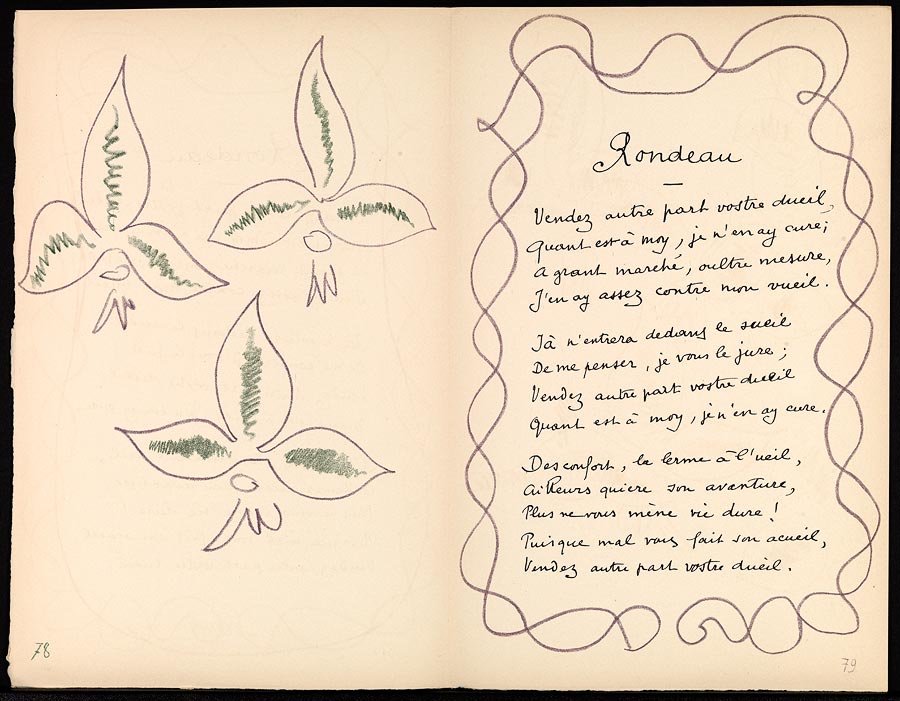 Rondeau
Vendez autre part vostre dueil,
Quant est à moy, je n'en ay cure;
A grant marché, oultre mesure,
J'en ay assez contre mon vueil.
Jà n'entrera dedans le sueil
De me penser, je vous le jure;
Vendez autre part vostre dueil
Quant est à moy, je n'en ay cure.
Desconfort, la lerme à l'ueil,
Ailleurs quiere son avanture,
Plus ne vous mène vie dure!
Puisque mal vous fait son acueil,
Vendez autre part vostre dueil.
78
79